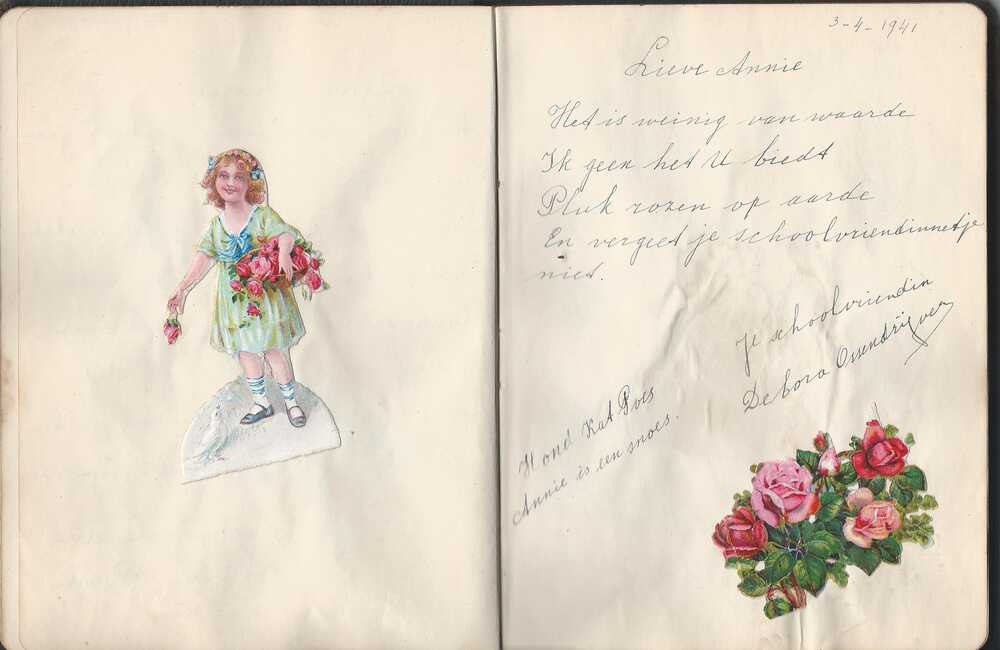 3-4-1941
Lieve Annie
Het is weinig van waarde
Ik geen het U biedt
Pluk rozen op aarde
En vergeet je schoolvriendinnetje
niet.
Je schoolvriendin
Debora Ossendrijver
Hond Kat Poes
Annie is een snoes.